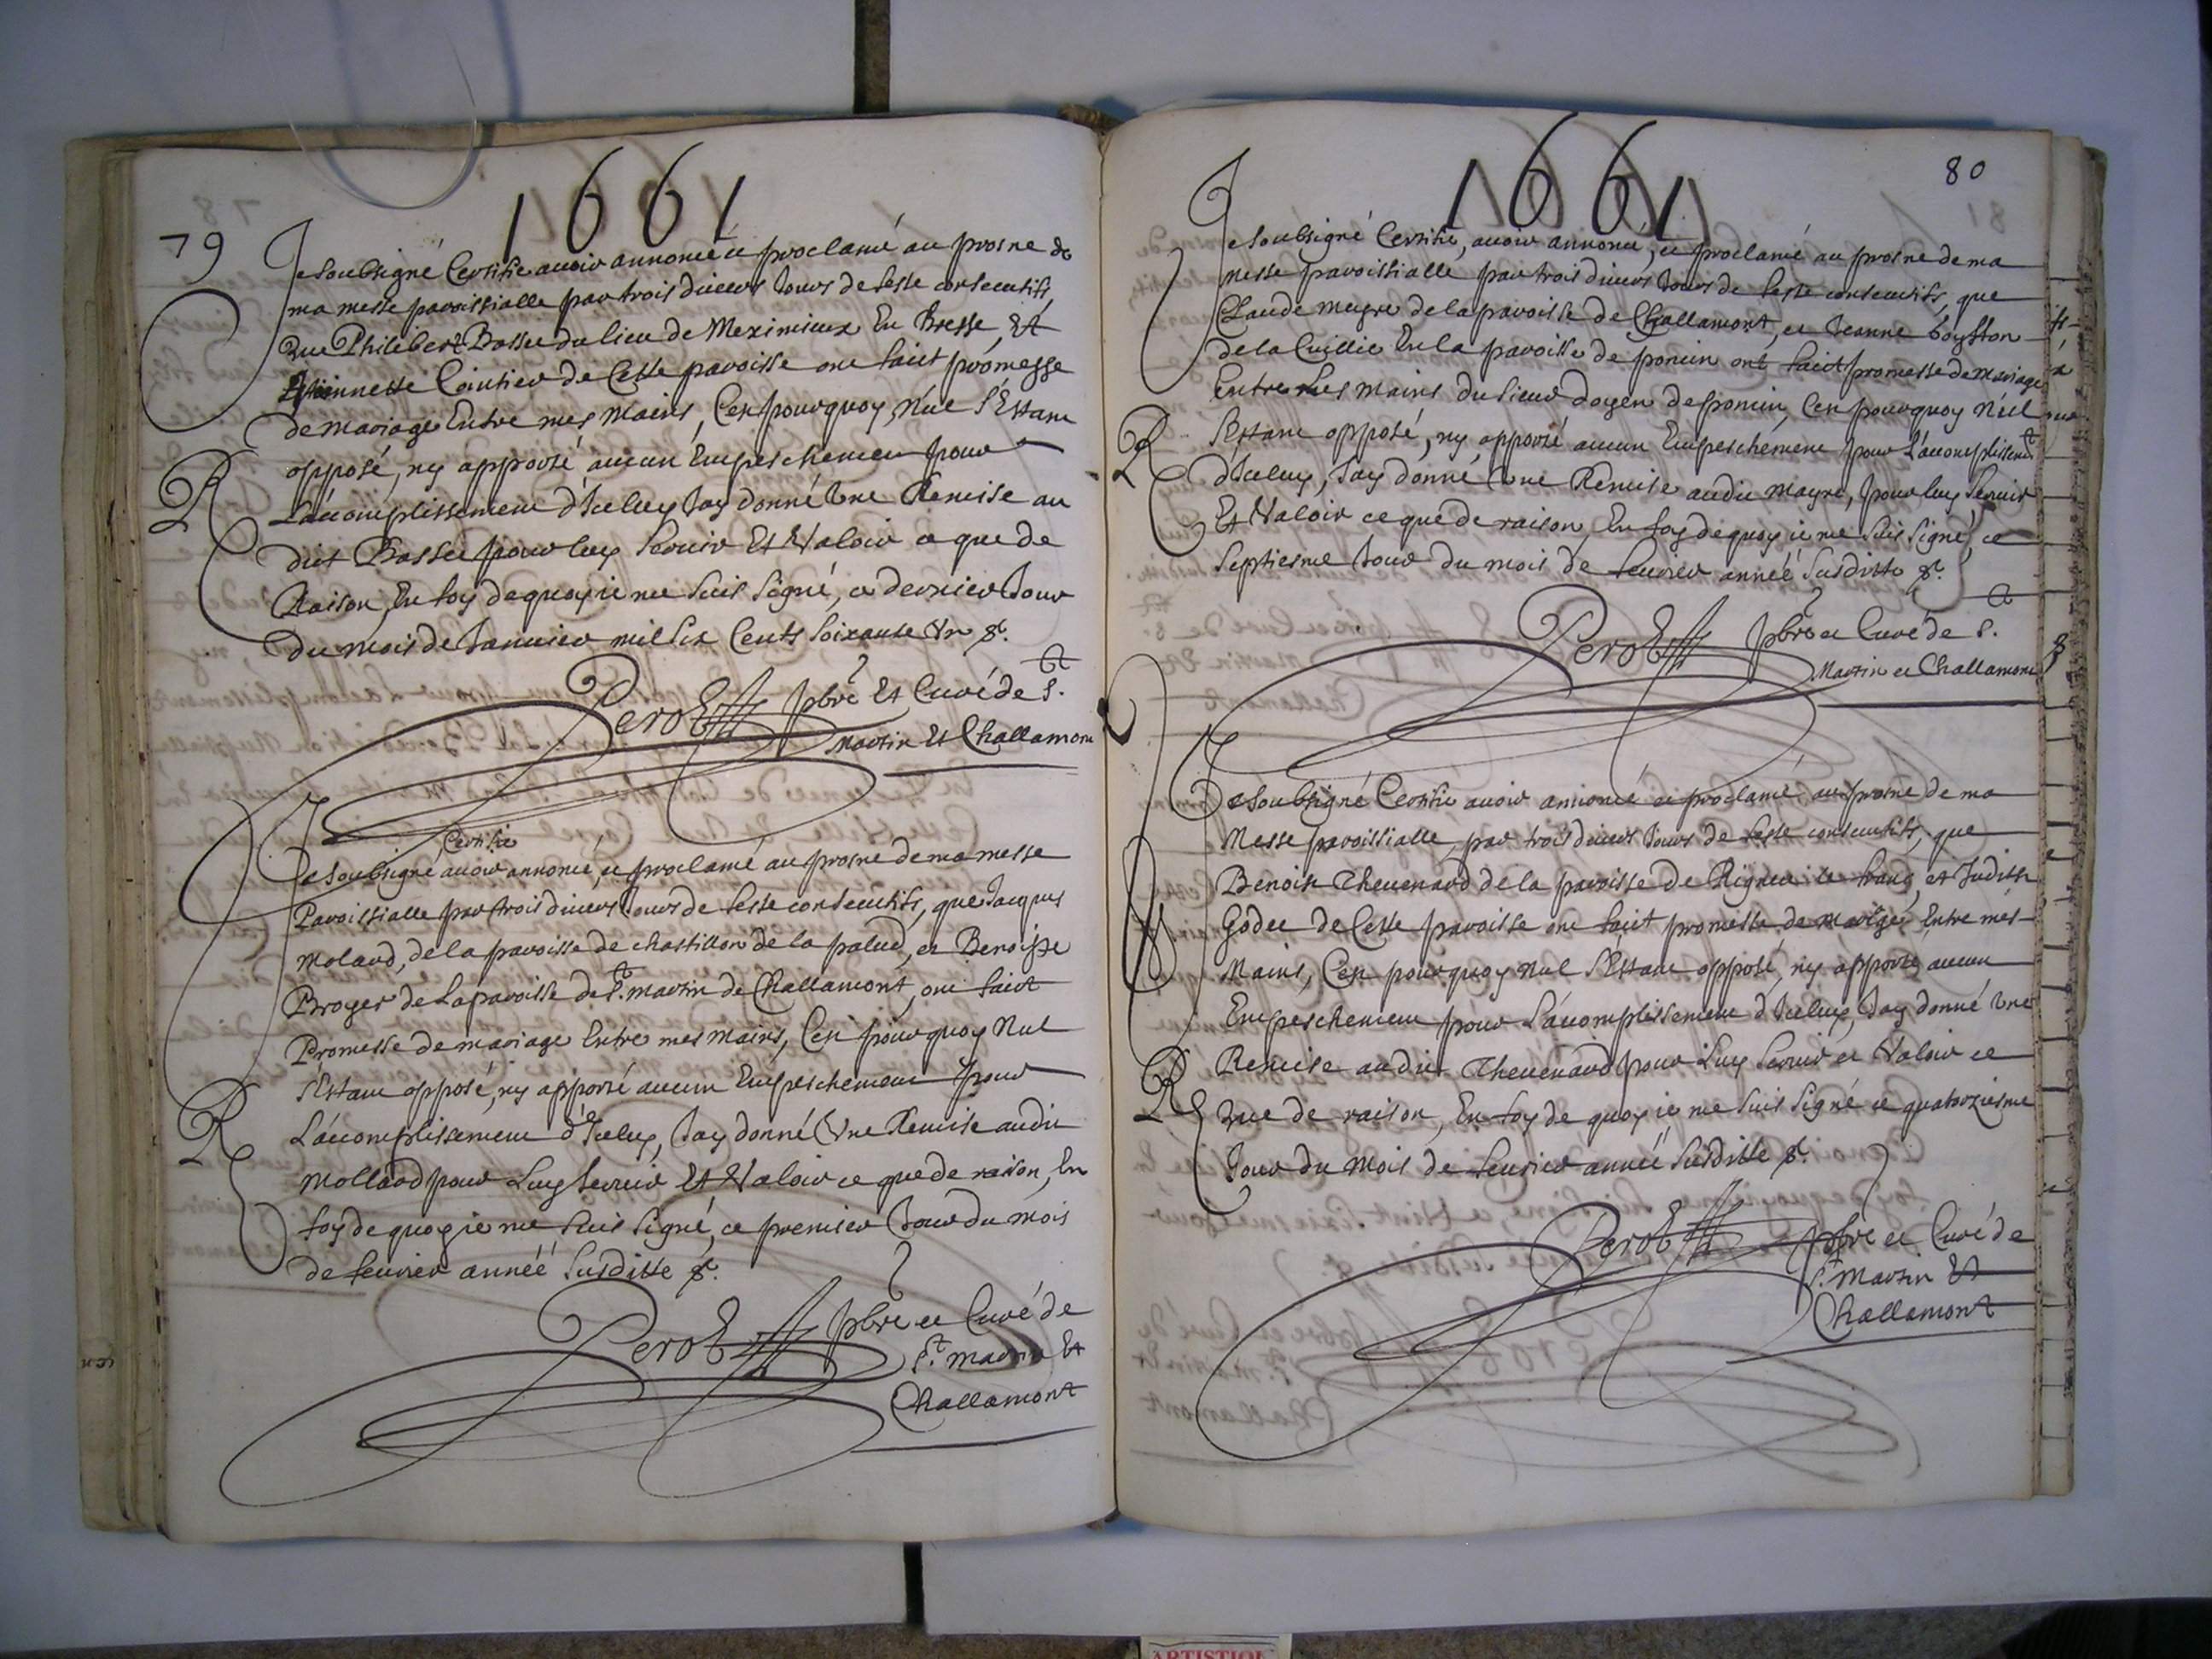 1661
79
Je soubsigné Certifie avoir annoncé et proclamé au prosne de
ma messe paroissialle par trois divers Jours de feste consecutifs,
Que Philibert Bossu du lieu de Meximieux En Bresse, Et
Estiennette Cointier de Cette paroisse ont faict promesse
de mariage Entre mes mains, C'en pourquoy Nul s'Estant
opposé, ny apporté aucun Empeschement pour
L'acomplissement d'Iceluy Jay donné Une Remise au
dict Bossu pour luy servir Et Valoir ce que de
Raison, En foy dequoy ie me suis signé, ce dernier Jour
du mois de Janvier mil six Cents soixante Un &c.
Perot pbre Et Curé de St.
Martin Et Challamont
Certifie
Je soubsigné avoir annoncé, et proclamé au prosne de ma messe
Paroissialle par trois divers Jours de feste consecutifs, que Jacques
Molard, de la paroisse de chastillon de la palud, et Benoiste
Broyer de La paroisse de St. martin de Challamont, ont faict
Promesse de mariage Entre mes mains, C'en pourquoy Nul
s'Estant opposé, ny apporté aucun Empeschement pour
L'acomplissement d'Iceluy, Jay donné Une Remise audit
Mollard pour Luy servir Et Valoir ce que de raison, En
foy dequoy ie me suis signé, ce premier Jour du mois
de feuvrier année susditte &c.
Perot pbre et Curé de
St. Martin Et
Challamont
R
R
1661
80
Je soubsigné Certifie, avoir annoncé, et proclamé au prosne de ma
messe paroissialle par trois divers Jours de feste consecutifs, que
Claude mugre de la paroisse de Challamont, et Jeanne boyston
de la Cuillie En la paroisse de poncin ont faict promesse de Mariage
Entre les mains du sieur doyen de poncin, C'en pourquoy Nul
s'Estant opposé, ny apporté aucun Empeschement pour L'acomplissemt
d'Iceluy, Jay donné Une Remise audit Mugre, pour luy servir
Et Valoir ce que de raison, En foy dequoy ie me suis signé, ce
septiesme Jour du mois de feuvrier année susditte &c.
Perot pbre et Curé de St.
Martin et Challamont
Je soubsigné Certifie avoir annoncé et proclamé au prosne de ma
Messe paroissialle, par trois divers Jours de feste consecutifs, que
Benoist Thevenard de la paroisse de Rigneu le franc, et Judith
Godet de Cette paroisse ont faict promesse de mariage Entre mes
Mains, C'en pourquoy Nul s'Estant opposé, ny apporté aucun
Empeschement pour L'acomplissement d'Iceluy, Jay donné Une
Remise audit Thevenard pour Luy servir et Valoir ce
que de raison, En foy de quoy ie me suis signé ce quatorziesme
Jour du Mois de feuvrier année susditte &c.
Perot pbre et Curé de
St. Martin Et
Challamont
R
R